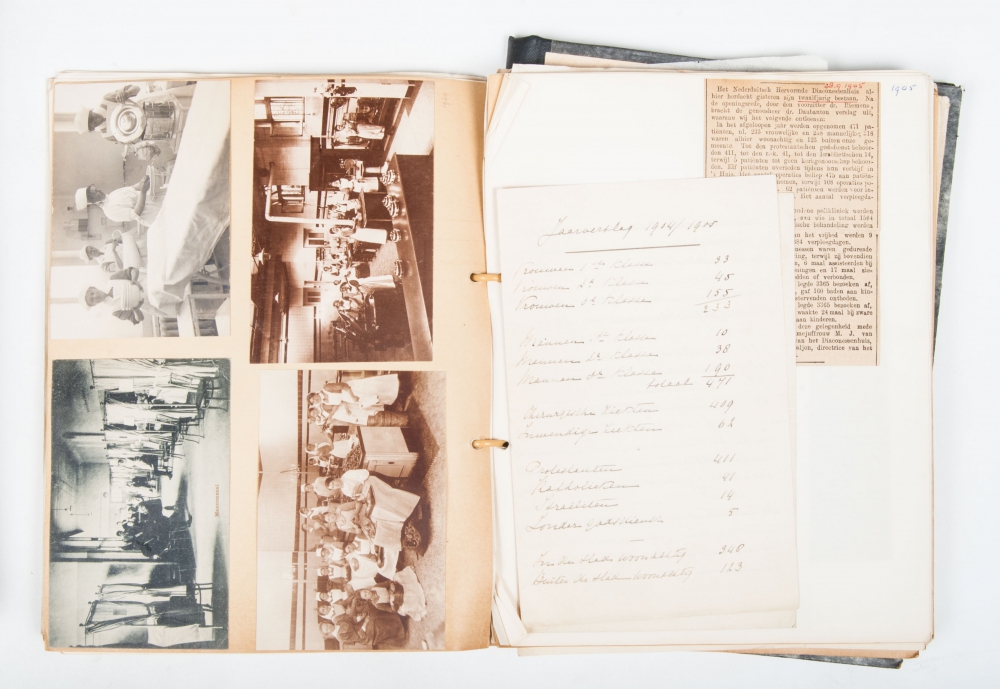 Mannenzaal
23.9.1905
1905
Het Nederduitsch Hervormde Diaconessenhuis al-
hier herdacht gisteren zijn twaalfjarig bestaan. Na
de openingsrede, door den voorzitter dr. Riemens,
bracht de geneesheer dr. Daubanton verslag uit,
waaraan wij het volgende ontleenen:
In het afgeloopen jaar werden opgenomen 471 pa-
tiënten, nl. 233 vrouwelijke en 238 mannelijke;
waren alhier woonachtig en 123 buiten onze ge-
meente. Tot den protestantschen godsdienst behoor-
den 411, tot den r.-k. 41, tot den Israëlietischen 14,
terwijl 5 patiënten tot geen kerkgenootschap behoor-
den.
't Huis.
62 patiënten werden voor
Het aantal verpleegda-
polikliniek werden
in totaal 1564
behandeling werden
het vrijbed werden 9
verpleegdagen.
werden gedurende
terwijl zij bovendien
6 maal assisteerden bij
en 17 maal
of verbonden.
legde 3365 bezoeken af,
gaf 160 baden aan kin-
stervenden onthoden.
legde 3365 bezoeken af,
waakte 24 maal bij zware
aan kinderen.
deze gelegenheid mede
mejuffrouw M. J. van
van het Diaconessenhuis,
directrice van het
Jaarverslag 1904/1905
Vrouwen 1ste Klasse 33
Vrouwen 2de Klasse 45
Vrouwen 3de Klasse 155
233
Mannen 1ste Klasse 10
Mannen 2de Klasse 38
Mannen 3de Klasse 190
totaal 471
Chirurgische Ziekten 409
Inwendige Ziekten 62
Protestanten 411
Katholieken 41
Israelieten 14
Zonder Godsdienst 5
In de stad woonachtig 348
Buiten de stad woonachtig 123